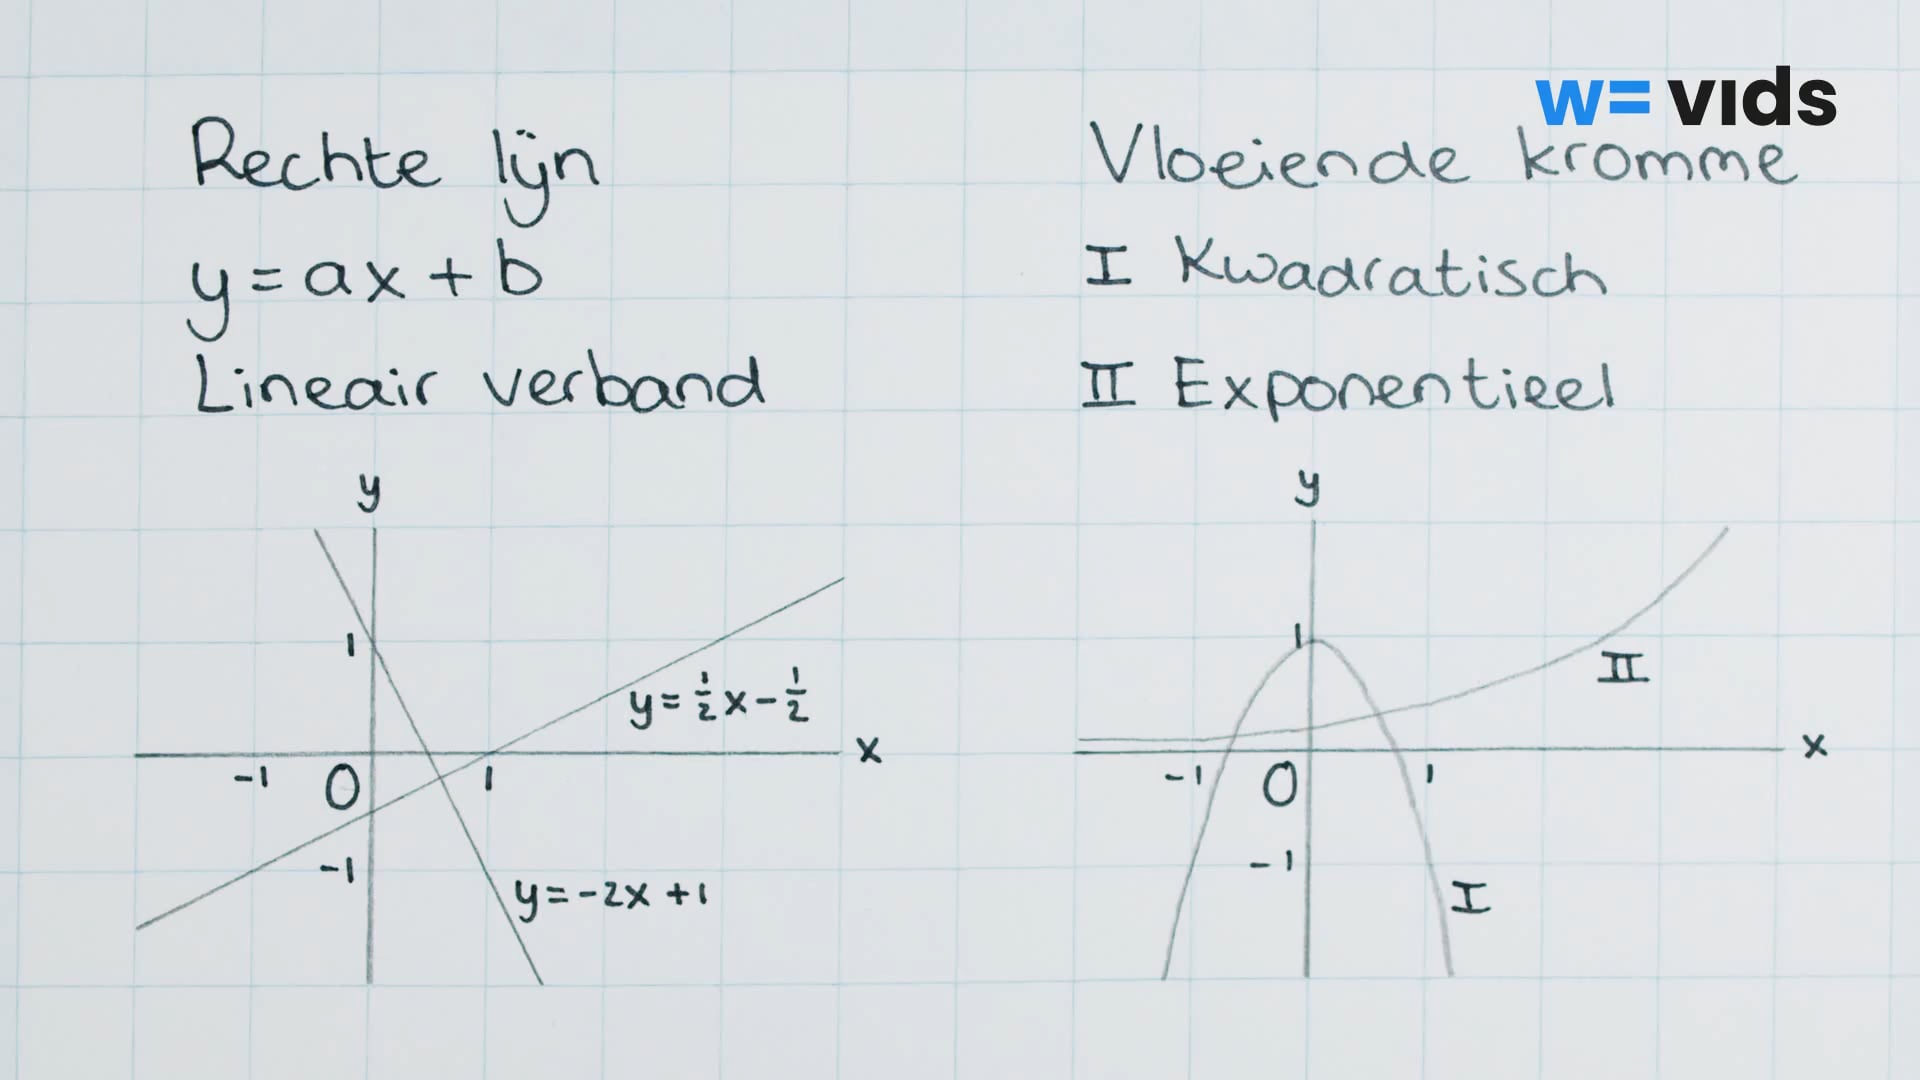 w= vıds
Rechte lijn
y = ax + b
Lineair verband
y
1
y = ½x - ½
x
-1
0
1
-1
y = -2x + 1
Vloeiende kromme
I Kwadratisch
II Exponentieel
y
1
II
x
-1
0
1
-1
I